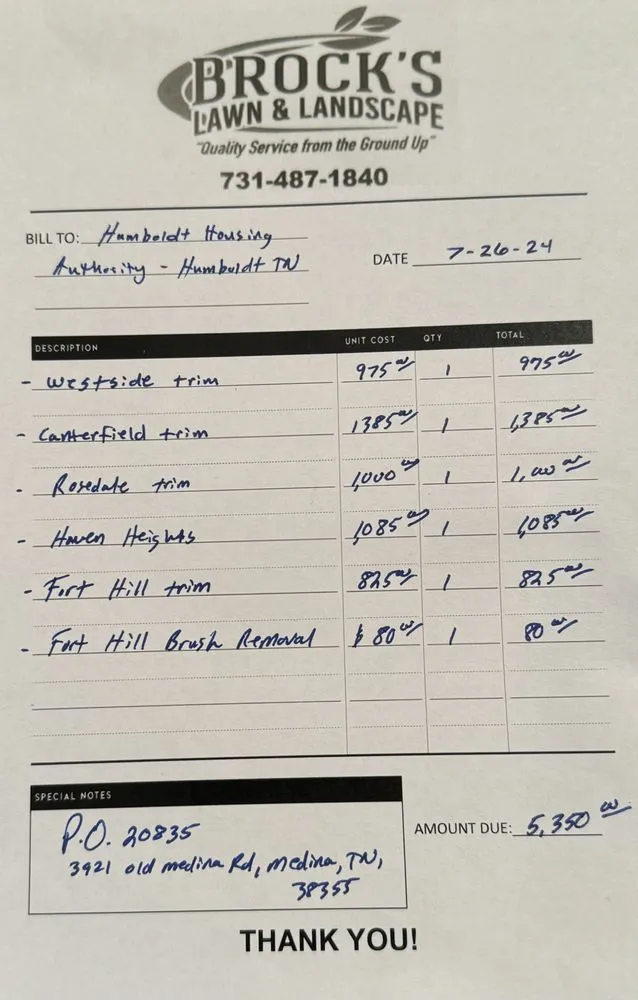 BROCK'S
LAWN & LANDSCAPE
"Quality Service from the Ground Up"
731-487-1840
BILL TO: Humboldt Housing
Authority - Humboldt TN
DATE 7-26-24
DESCRIPTION UNIT COST QTY TOTAL
- Westside trim 975 00 1 975 00
- Canterfield trim 1385 00 1 1,385 00
- Rosedale trim 1,000 00 1 1,000 00
- Haven Heights 1,085 00 1 1,085 00
- Fort Hill trim 825 00 1 825 00
- Fort Hill Brush Removal $ 80 00 1 80 00
SPECIAL NOTES
P.O. 20835
3921 old medina Rd, medina, TN,
38355
AMOUNT DUE: 5,350 00
THANK YOU!